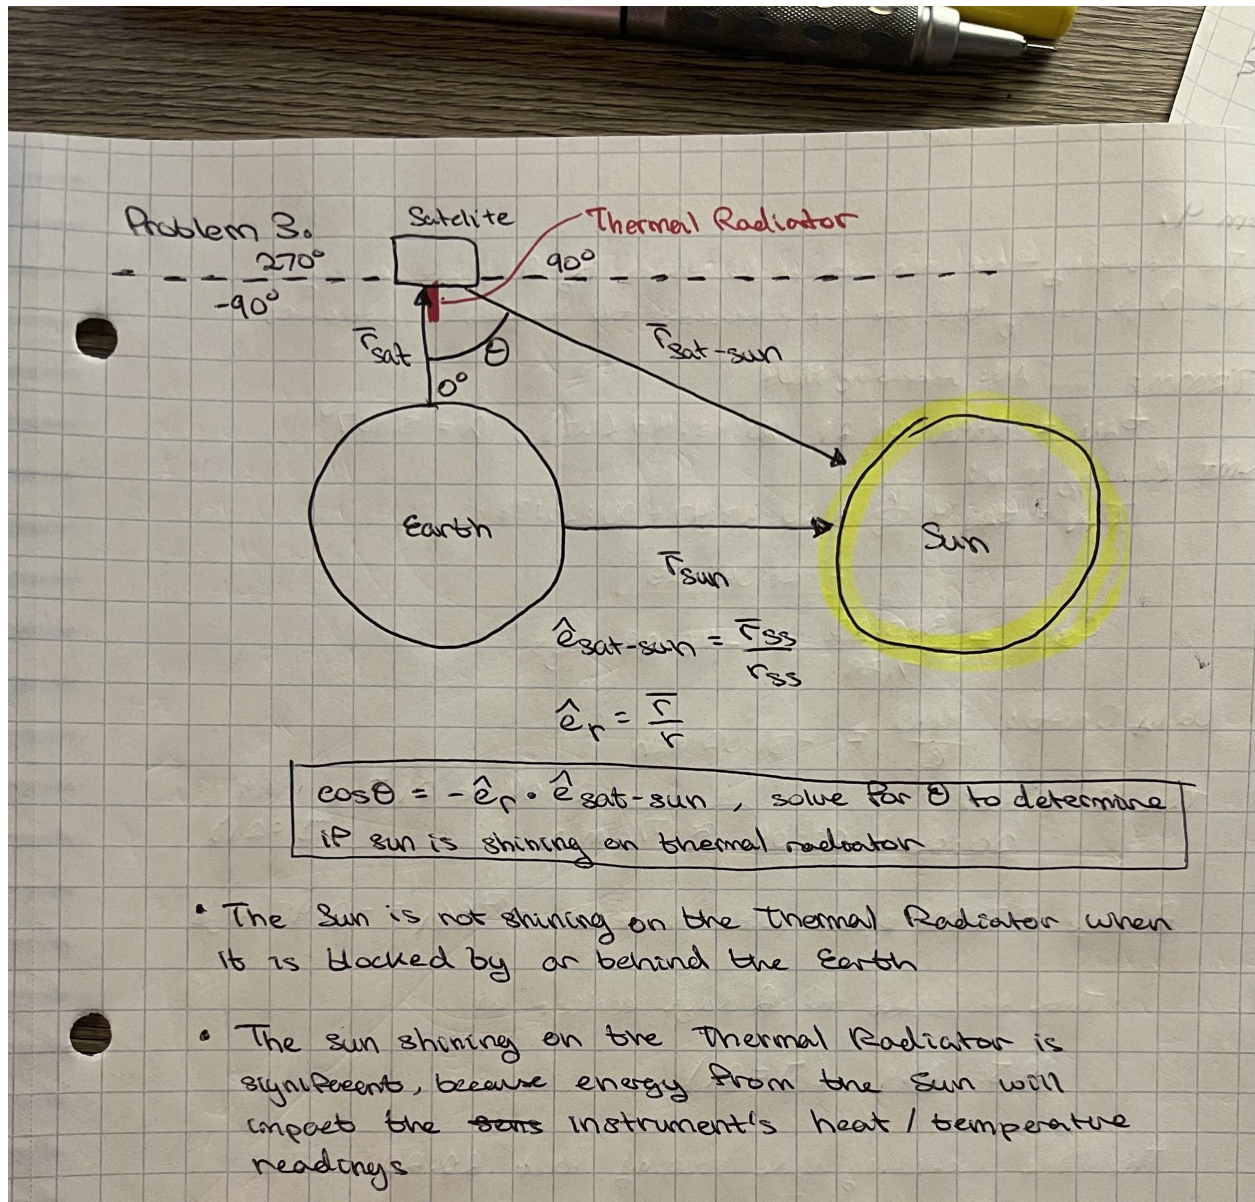 Problem 3.
Satelite
Thermal Radiator
270°
90°
-90°
r̅sat
θ
r̅sat-sun
0°
Earth
Sun
r̅sun
ê sat-sun = r̅ss / rss
ê r = r̅ / r
cosθ = - ê r • ê sat-sun , solve for θ to determine
if sun is shining on thermal radiator
• The Sun is not shining on the Thermal Radiator when
it is blocked by or behind the Earth
• The sun shining on the Thermal Radiator is
significent, because energy from the Sun will
impact the sens instrument's heat / temperature
readings